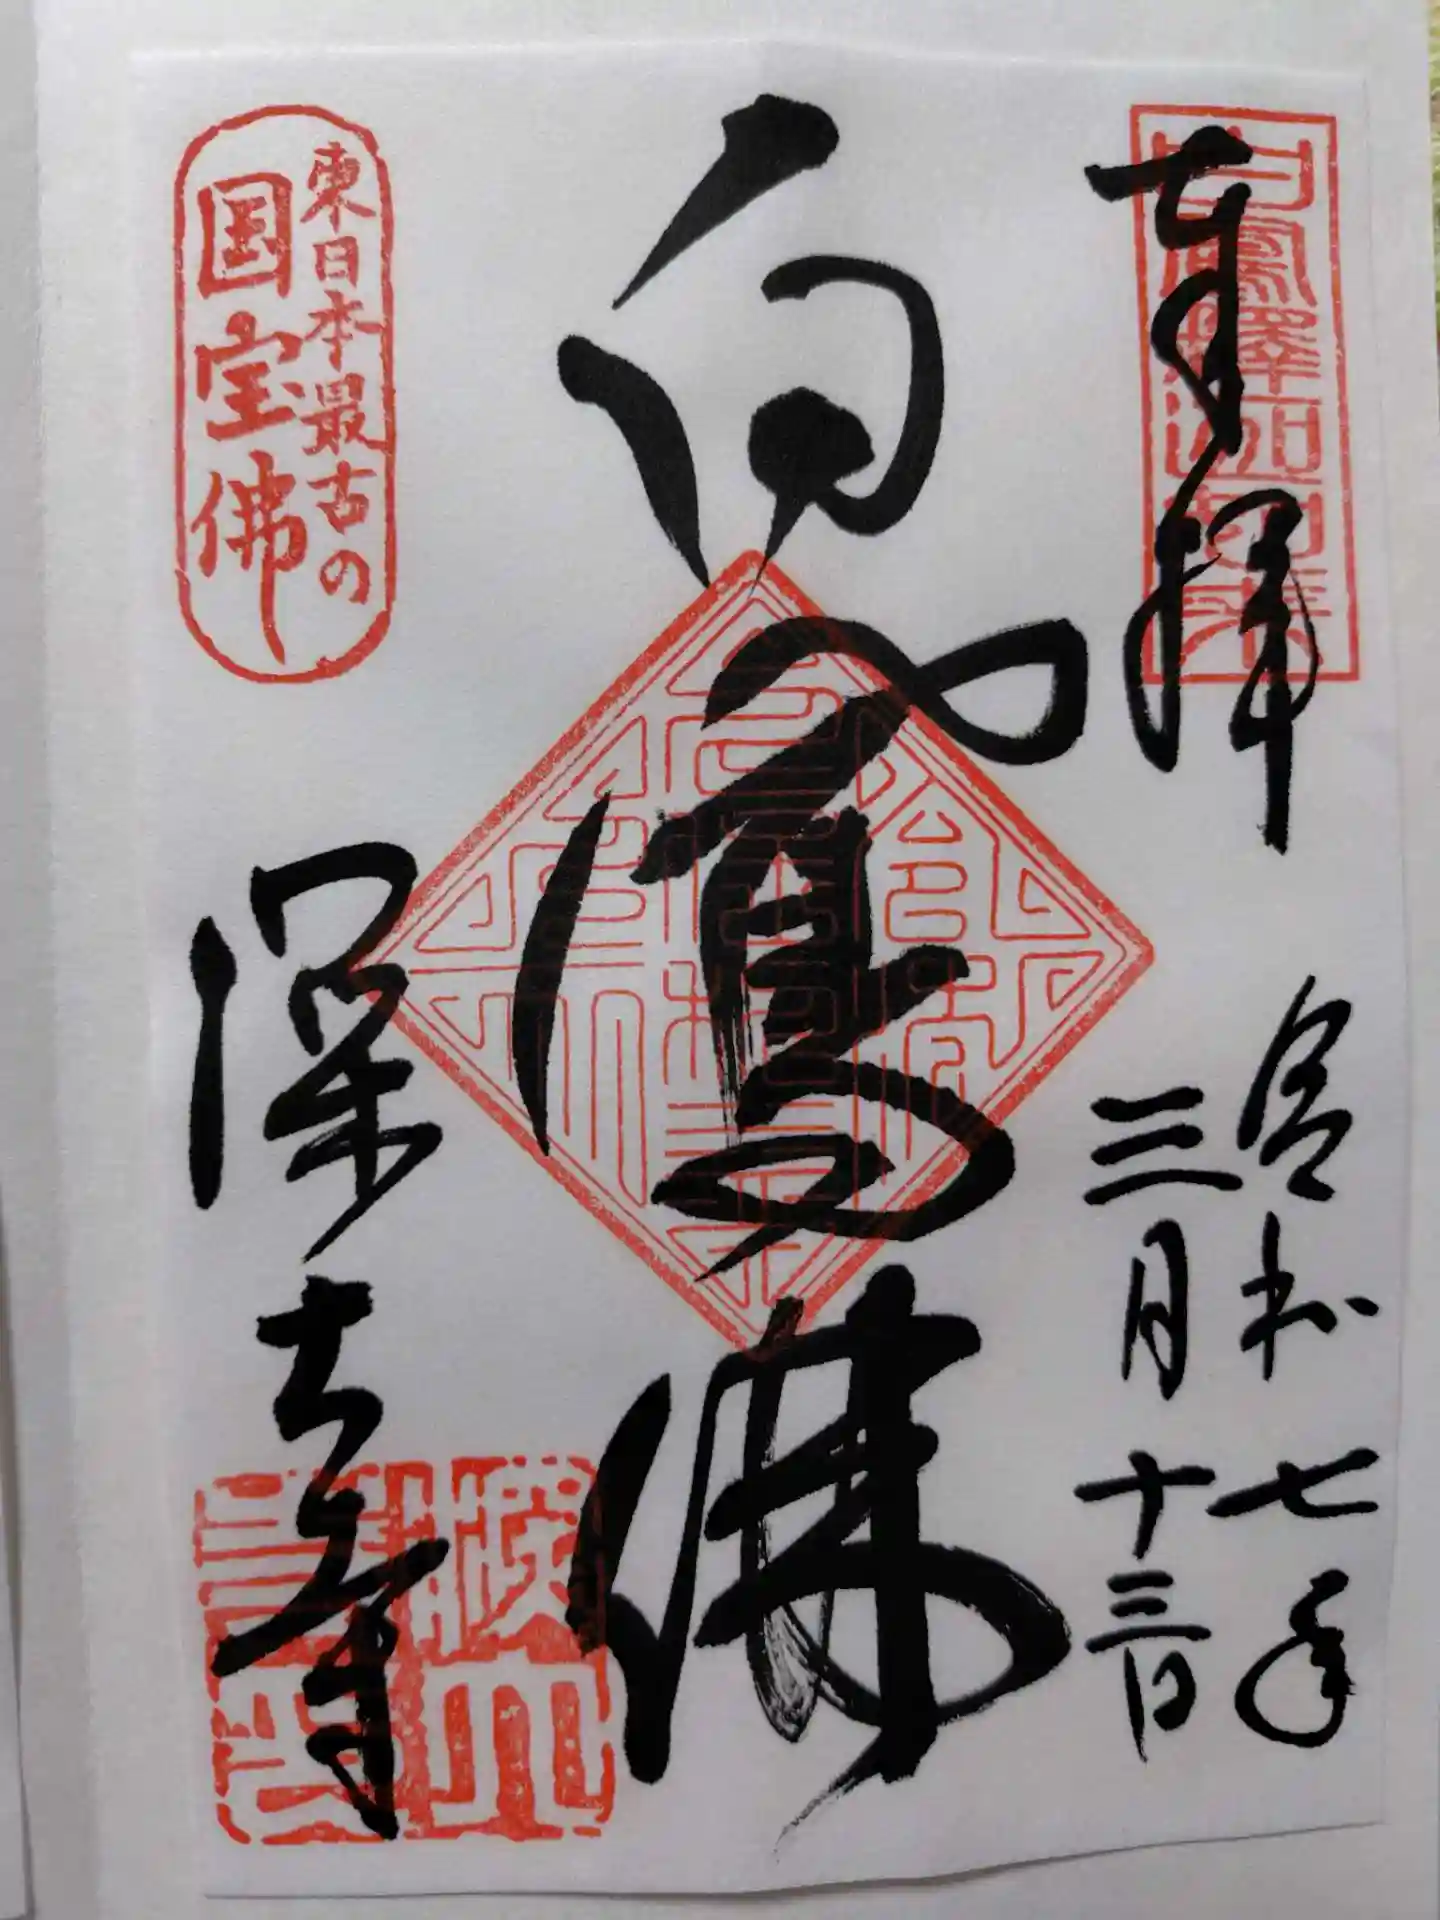 奉拝
令和七年
三月十三日
白鳳佛
東日本最古の
国宝佛
深大寺
白鳳釋迦如来